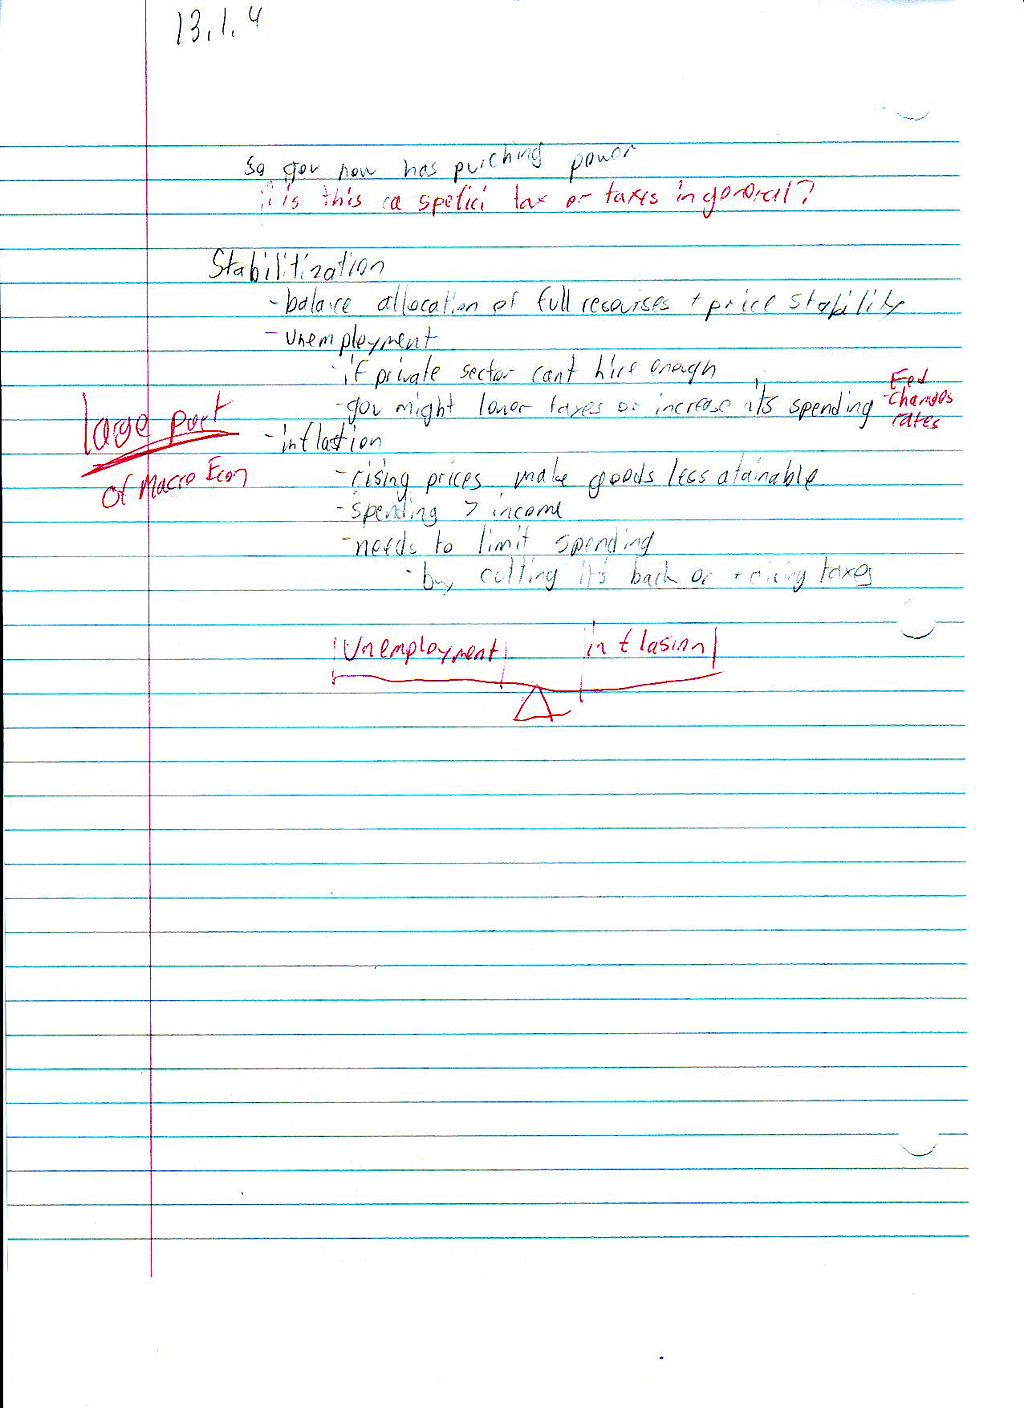 13.1.4
So gov now has purching power
is this a spefici tax or taxes in general?
Stabilitization
- balance allocation of full resourses + price stability
- unemployment
- if private sector cant hire enough
- gov might lower taxes or increase its spending
- Fed
changes
rates
large part
of Macro Econ
- inflastion
- rising prices make goods less atainable
- spending > income
- needs to limit spending
- by cutting it's back or raising taxes
Unemployment inflasion